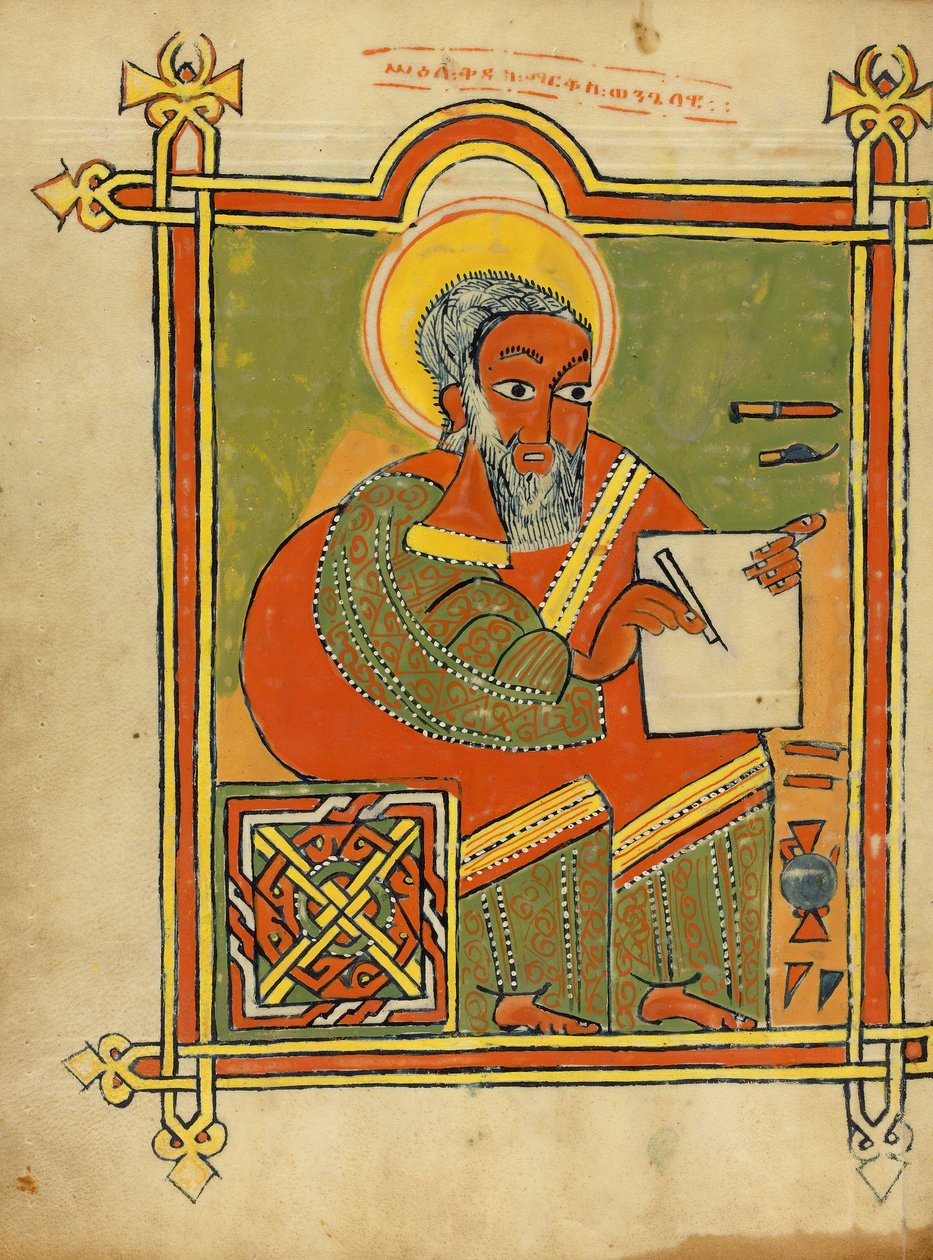 ሥዕለ፡ቅዱስ፡ማርቆስ፡ወንጌላዊ፡፡